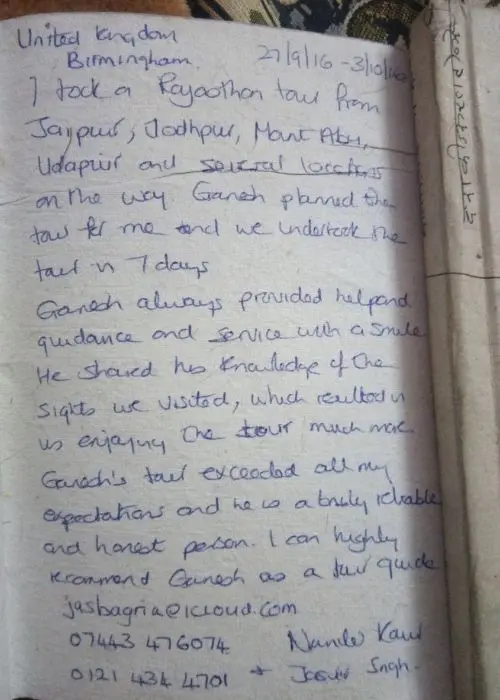 United Kingdom
Birmingham.
27/9/16 - 3/10/16
I took a Rajasthan tour from
Jaipur, Jodhpur, Mant Abu,
Udaipur and several locations
on the way. Ganesh planned the
tour for me and we undertook the
tour in 7 days
Ganesh always provided help and
guidance and service with a smile
He shared his knowledge of the
sights we visited, which resulted in
us enjoying the tour much more
Ganesh's tour exceeded all my
expectations and he is a truly reliable
and honest person. I can highly
recommend Ganesh as a tour guide
jasbagria@icloud.com
07443 476074 Kaur
0121 434 4701 + Singh.